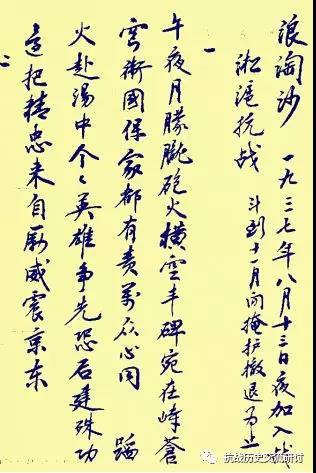 浪淘沙 一九三七年八月十三日夜加入
淞沪抗战 斗到十一月间掩护撤退为止
一
午夜月朦朧砲火横空丰碑宛在峙蒼
穹衛國保家都有责萬众心同 蹈
火赴湯中 英雄争先恐后建珠功
把精忠来自励威震京东
抗战历史交流研讨